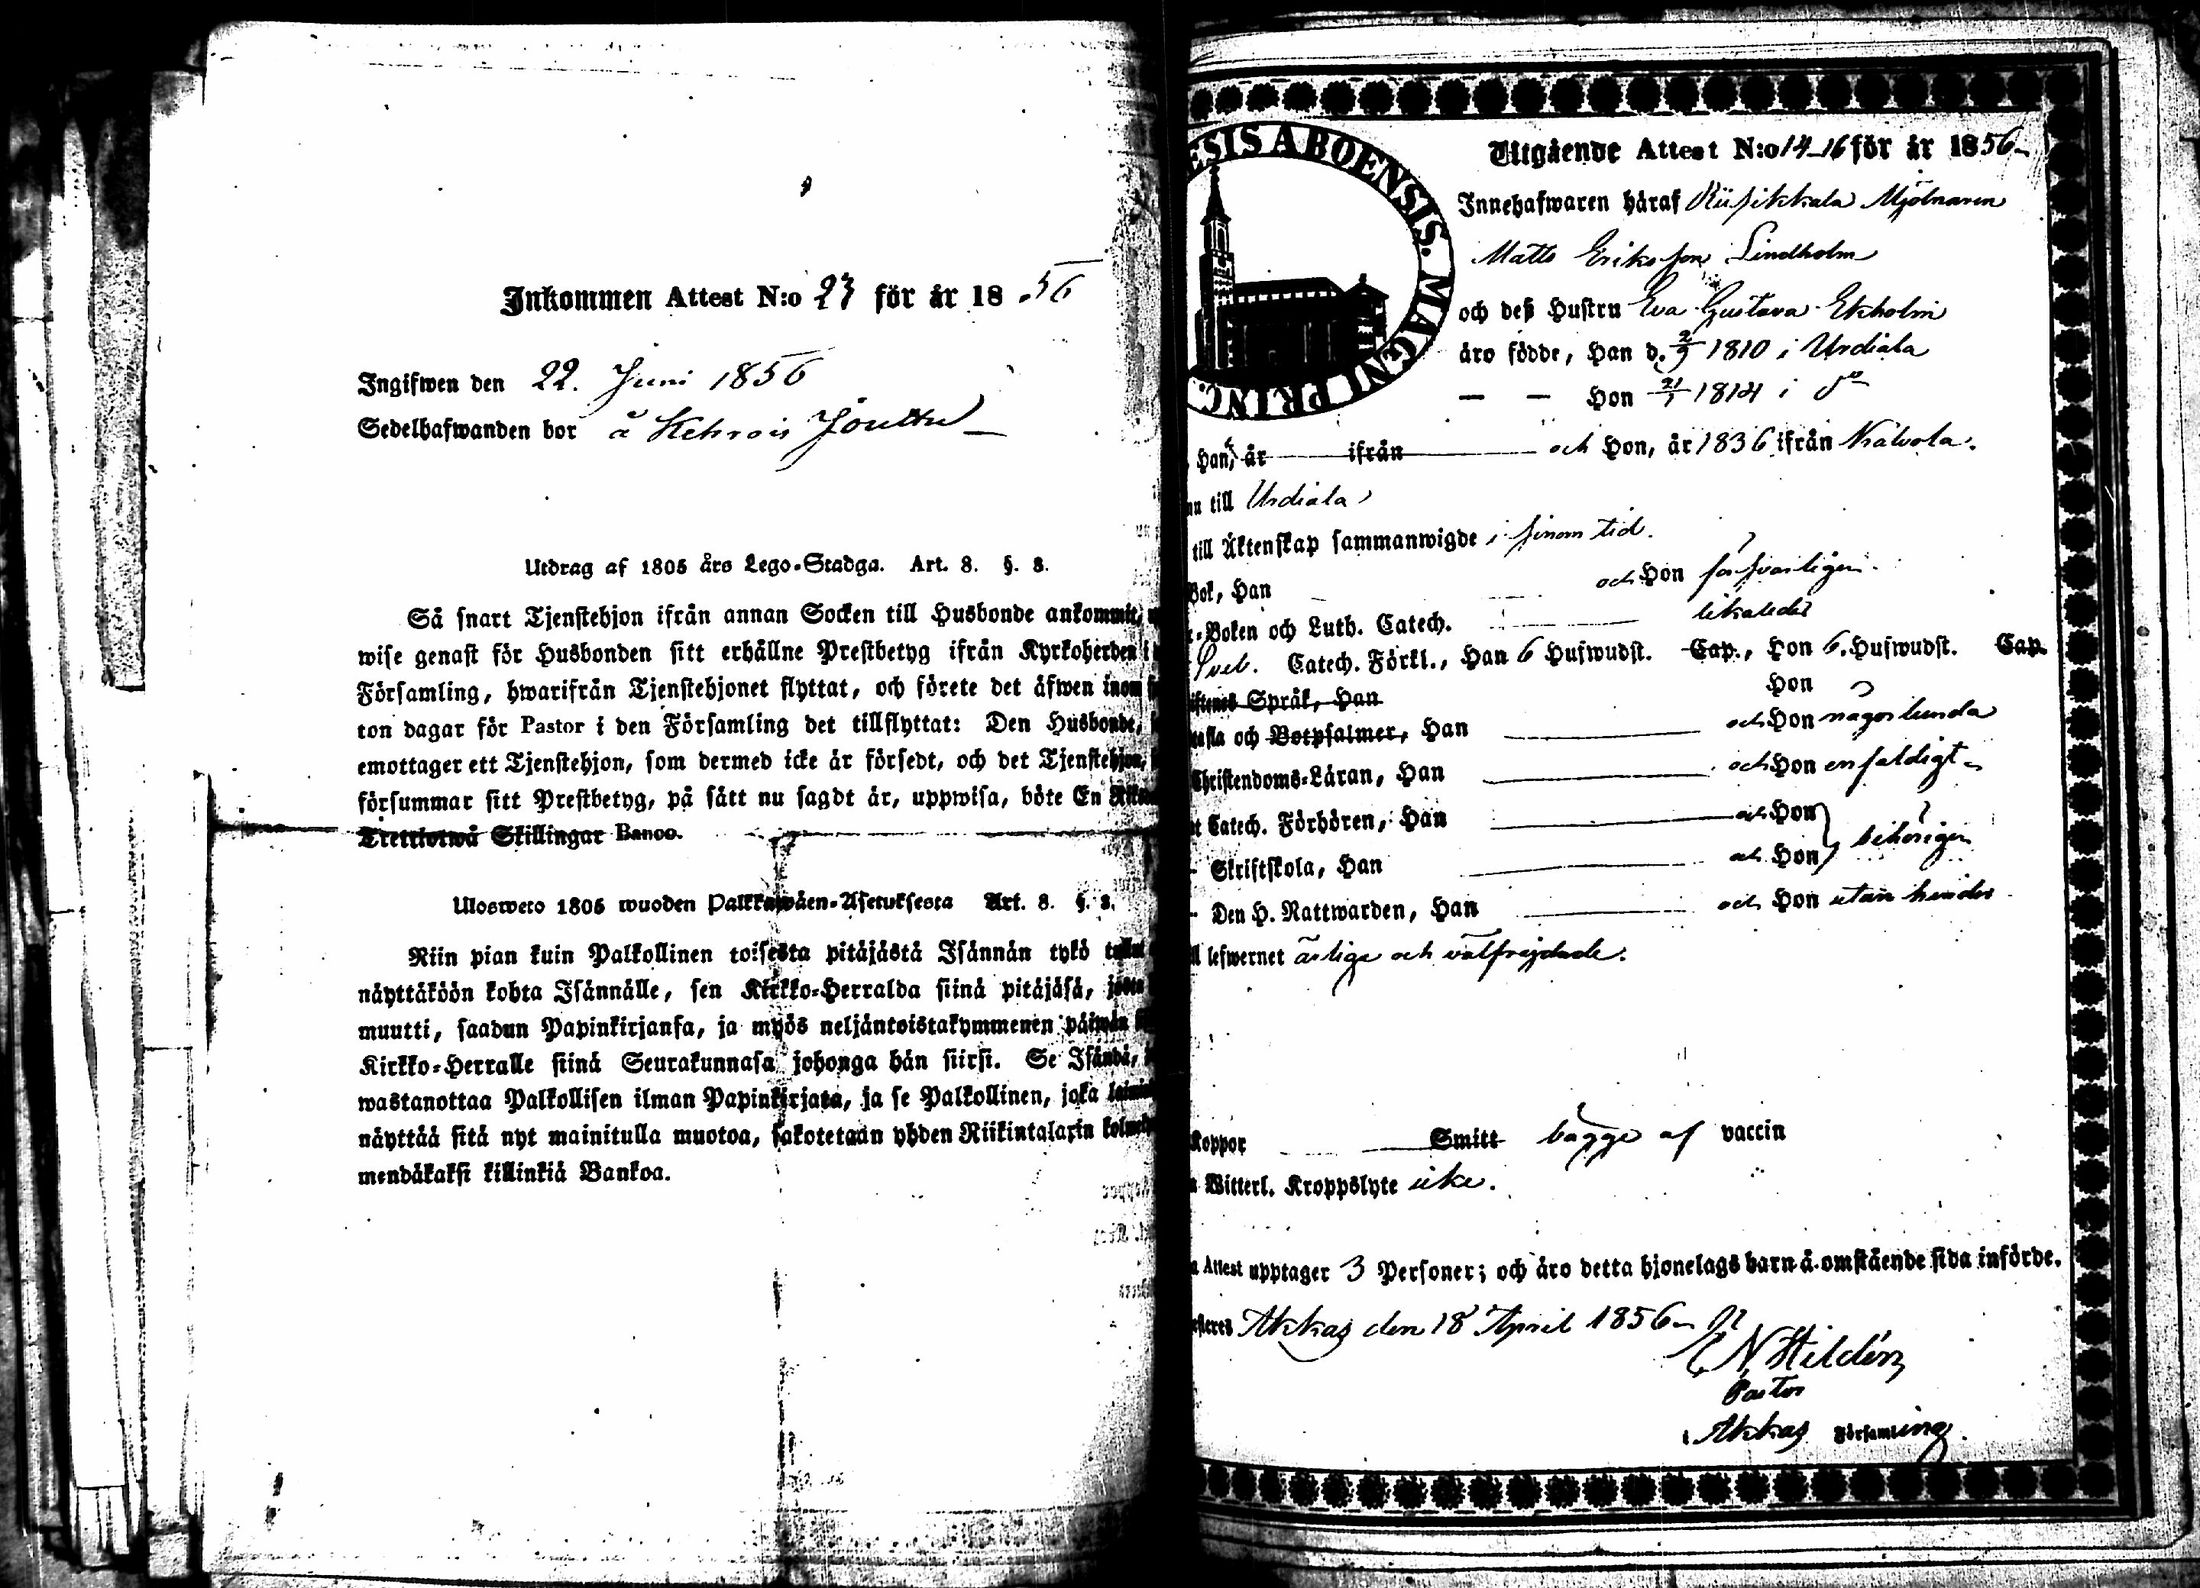 Inkommen Attest N:o 23 för år 1856
Ingifwen den 22. Juni 1856
Sedelhafwanden bor å Kehrois Jouttu
Utdrag af 1805 års Lego-Stadga. Art. 8. §. 3.
Så snart Tjenstehjon ifrån annan Socken till Husbonde ankommit,
wise genast för Husbonden sitt erhållne Prestbetyg ifrån Kyrkoherden i
Församling, hwarifrån Tjenstehjonet flyttat, och förete det äfwen inom
ton dagar för Pastor i den Församling det tillflyttat: Den Husbonde,
emottager ett Tjenstehjon, som dermed icke är försedt, och det Tjenstehjon,
försummar sitt Prestbetyg, på sätt nu sagdt är, uppwisa, böte En
Trettiotwå Skillingar Banco.
Ulosweto 1805 wuoden Palkkawäen-Asetuksesta Art. 8. §. 3.
Niin pian kuin Palkollinen toisesta pitäjästä Isännän tykö
näyttäköön kohta Isännälle, sen Kirkko-Herralda siinä pitäjäsä,
muutti, saadun Papinkirjansa, ja myös neljäntoistakymmenen päiwän
Kirkko-Herralle siinä Seurakunnasa johonga hän siirsi. Se Isändä,
wastanottaa Palkollisen ilman Papinkirjata, ja se Palkollinen, joka
näyttää sitä nyt mainitulla muotoa, sakotetaan yhden Riikintalarin
mendäkaksi killinkiä Bankoa.
ESIS ABOENSIS. MAGNI PRINC.
Utgående Attest N:o 14-16 för år 1856
Innehafwaren häraf Riisikkala Mjölnaren
Matts Eriksson Lindholm
och deß Hustru Eva Gustava Ekholm
äro födde, Han d. 2/9 1810 i Urdiala
— — Hon 21/1 1814 i do
Han, år ifrån och Hon, år 1836 ifrån Kälvola.
nu till Urdiala
till Äktenskap sammanwigde i sinom tid.
Bok, Han och Hon försvarligen.
Boken och Luth. Catech. likaledes
Sveb. Catech. Förkl., Han 6 Hufwudst. Cap., Hon 6. Hufwudst. Cap.
Språk, Han Hon
och Botpsalmer, Han och Hon någorlunda
Christendoms-Läran, Han och Hon enfaldigt
Catech. Förhören, Han och Hon
behörigen
Skriftskola, Han och Hon
Den H. Nattwarden, Han och Hon utan hinder
lefwernet ärlige och välfrejdade.
Koppor Smitt bägge af vaccin
Witterl. Kroppslyte icke.
Attest upptager 3 Personer; och äro detta hjonelags barn å omstående sida införde.
Akkas den 18 April 1856
E N Hildén
Pastor
i Akkas Församling.